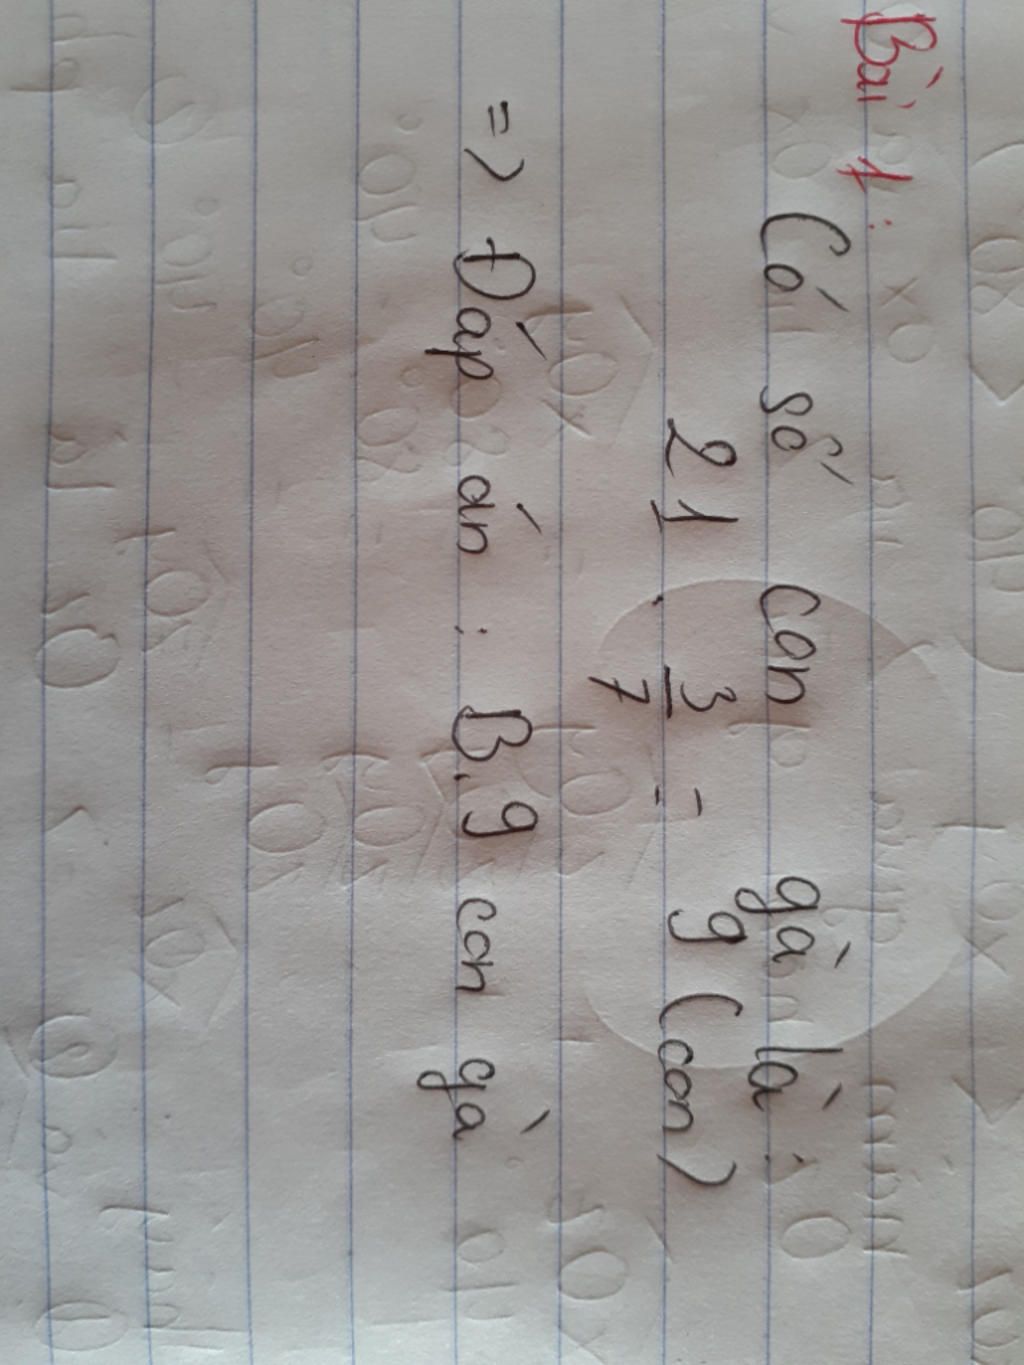 Bài 1:
Có số con gà là:
21 . 3/7 = 9 (con)
=> Đáp án : B. 9 con gà